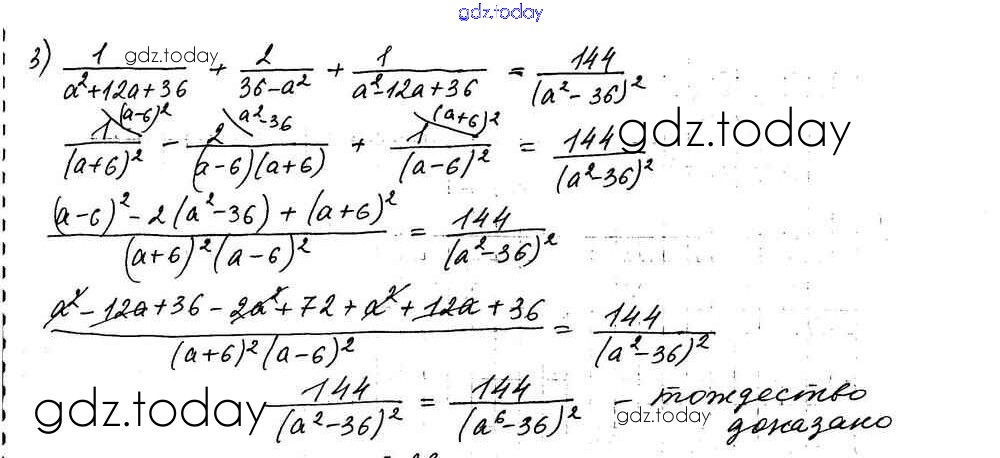 gdz.today
3) 1/(a²+12a+36) + 2/(36-a²) + 1/(a²-12a+36) = 144/(a²-36)²
gdz.today
1/(a+6)² (a-6)² - 2/((a-6)(a+6)) a²-36 + 1/(a-6)² (a+6)² = 144/(a²-36)²
gdz.today
((a-6)²-2(a²-36)+(a+6)²)/((a+6)²(a-6)²) = 144/(a²-36)²
(a²-12a+36-2a²+72+a²+12a+36)/((a+6)²(a-6)²) = 144/(a²-36)²
gdz.today
144/(a²-36)² = 144/(a⁶-36)² - тождество
gdz.today
доказано